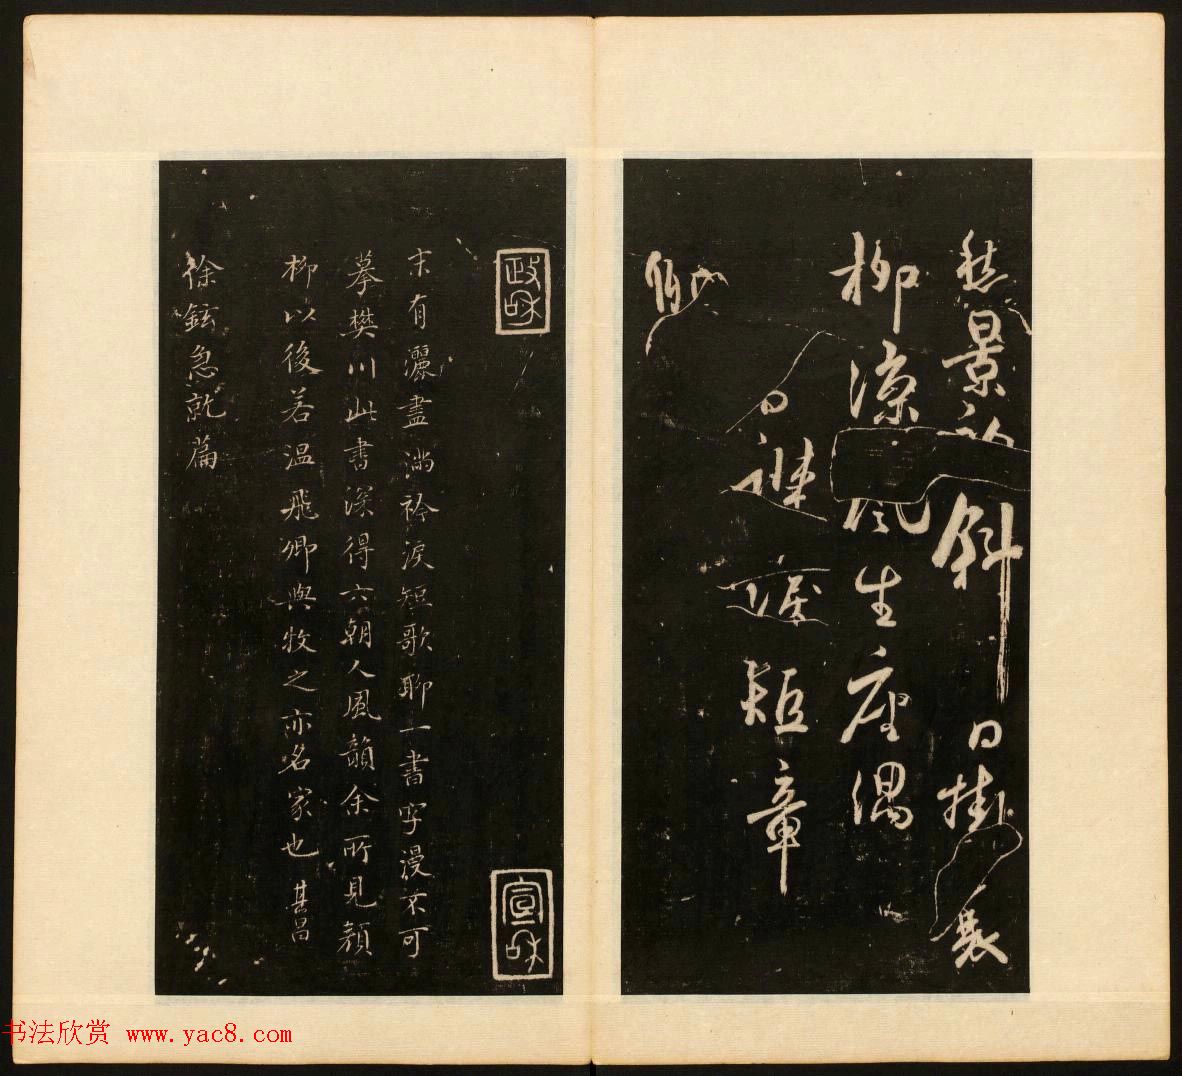 愁景初斜日掛衰
柳涼風生座偶
日進淚短章
政和
宣和
末有灑盡滿衿淚短歌聊一書字漫不可
摹樊川此書深得六朝人風韻余所見顏
柳以後若温飛卿與牧之亦名家也 其昌
徐鉉急就篇
书法欣赏 www.yac8.com